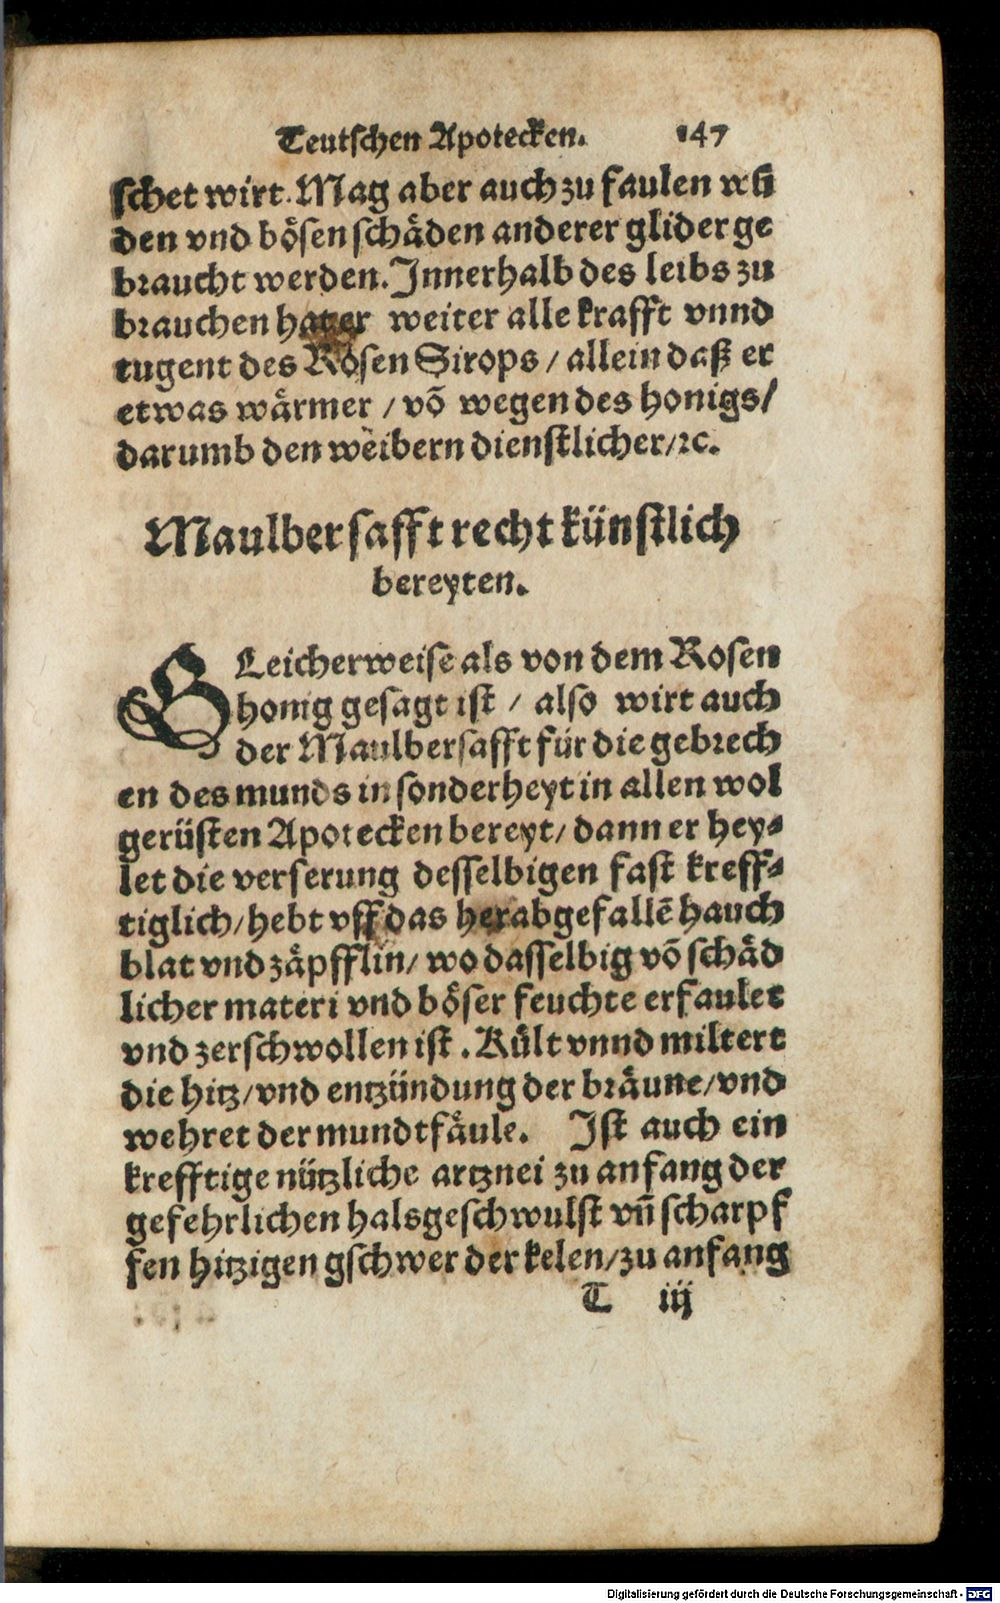 Teutschen Apotecken. 147
schet wirt. Mag aber auch zu faulen wū
den vnd bösen schäden anderer glider ge
braucht werden. Innerhalb des leibs zu
brauchen hat er weiter alle krafft vnnd
tugent des Rosen Sirops / allein daß er
etwas wärmer / võ wegen des honigs /
darumb den weibern dienstlicher / ꝛc.
Maulbersafft recht künstlich
bereyten.
GLeicherweise als von dem Rosen
honig gesagt ist / also wirt auch
der Maulbersafft für die gebrech
en des munds in sonderheyt in allen wol
gerüsten Apotecken bereyt / dann er hey⸗
let die verserung desselbigen fast kreff⸗
tiglich / hebt vff das herabgefallē hauch
blat vnd zäpfflin / wo dasselbig võ schäd
licher materi vnd böser feuchte erfaulet
vnd zerschwollen ist. Kült vnnd miltert
die hitz / vnd entzündung der bräune / vnd
wehret der mundtfäule. Ist auch ein
krefftige nützliche artznei zu anfang der
gefehrlichen halsgeschwulst vñ scharpf
fen hitzigen gschwer der kelen / zu anfang
T iij
Digitalisierung gefördert durch die Deutsche Forschungsgemeinschaft - DFG